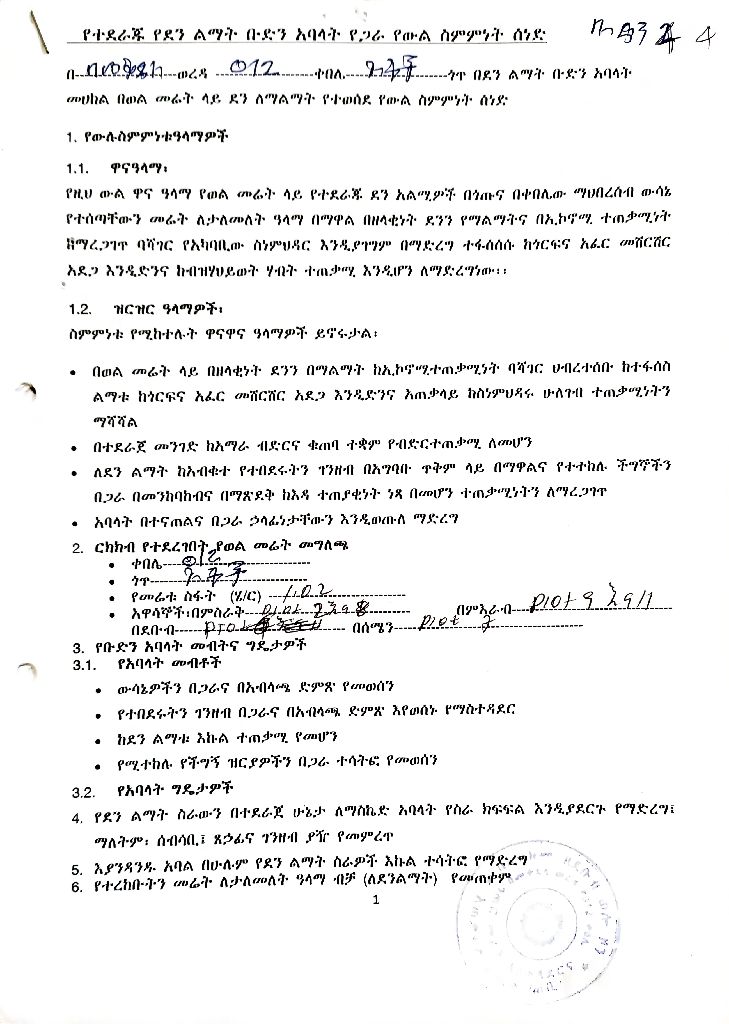 የተደራጁ የደን ልማት ቡድን አባላት የጋራ የውል ስምምነት ሰነድ
በ ወረዳ 012 ቀበሌ ጎጥ በደን ልማት ቡድን አባላት
መሀከል በወል መሬት ላይ ደን ለማልማት የተወሰደ የውል ስምምነት ሰነድ
1. የውሉስምምነቱዓላማዎች
1.1. ዋናዓላማ፡
የዚህ ውል ዋና ዓላማ የወል መሬት ላይ የተደራጁ ደን አልሚዎች በጎጡና በቀበሌው ማህበረሰብ ውሳኔ
የተሰጣቸውን መሬት ለታለመለት ዓላማ በማዋል በዘላቂነት ደንን የማልማትና በኢኮኖሚ ተጠቃሚነት
ከማረጋገጥ ባሻገር የአካባቢው ስነምህዳር እንዲያገግም በማድረግ ተፋሰሰሱ ከጎርፍና አፈር መሸርሸር
አደጋ እንዲድንና ከብዝሃህይወት ሃብት ተጠቃሚ እንዲሆን ለማድረግነው፡፡
1.2. ዝርዝር ዓላማዎች፡
ስምምነቱ የሚከተሉት ዋናዋና ዓላማዎች ይኖሩታል፡
• በወል መሬት ላይ በዘላቂነት ደንን በማልማት ከኢኮኖሚተጠቃሚነት ባሻገር ህብረተሰቡ ከተፋሰስ
ልማቱ ከጎርፍና አፈር መሸርሸር አደጋ እንዲድንና አጠቃላይ ከስነምህዳሩ ሁለገብ ተጠቃሚነትን
ማሻሻል
• በተደራጀ መንገድ ከአማራ ብድርና ቁጠባ ተቋም የብድርተጠቃሚ ለመሆን
• ለደን ልማት ከአብቁተ የተበደሩትን ገንዘብ በአግባቡ ጥቅም ላይ በማዋልና የተተከሉ ችግኞችን
በጋራ በመንከባከብና በማጽደቅ ከእዳ ተጠያቂነት ነጻ በመሆን ተጠቃሚነትን ለማረጋገጥ
• አባላት በተናጠልና በጋራ ኃላፊነታቸውን እንዲወጡለ ማድረግ
2. ርክክብ የተደረገበት የወል መሬት መግለጫ
• ቀበሌ 012
• ጎጥ
• የመሬቱ ስፋት (ሄ/ር) 1.02
• አዋሳኞች፡በምስራቅ plot በምእራብ plot 9 እና 11
በደቡብ plot በሰሜን plot 7
3. የቡድን አባላት መብትና ግዴታዎች
3.1. የአባላት መብቶች
• ውሳኔዎችን በጋራና በአብላጫ ድምጽ የመወሰን
• የተበደሩትን ገንዘብ በጋራና በአብላጫ ድምጽ እየወሰኑ የማስተዳደር
• ከደን ልማቱ እኩል ተጠቃሚ የመሆን
• የሚተከሉ የችግኝ ዝርያዎችን በጋራ ተሳትፎ የመወሰን
3.2. የአባላት ግዴታዎች
4. የደን ልማት ስራውን በተደራጀ ሁኔታ ለማስኬድ አባላት የስራ ክፍፍል እንዲያደርጉ የማድረግ፤
ማለትም፡ ሰብሳቢ፤ ጸኃፊና ገንዘብ ያዥ የመምረጥ
5. እያንዳንዱ አባል በሁሉም የደን ልማት ስራዎች እኩል ተሳትፎ የማድረግ
6. የተረከቡትን መሬት ለታለመለት ዓላማ ብቻ (ለደንልማት) የመጠቀም
1